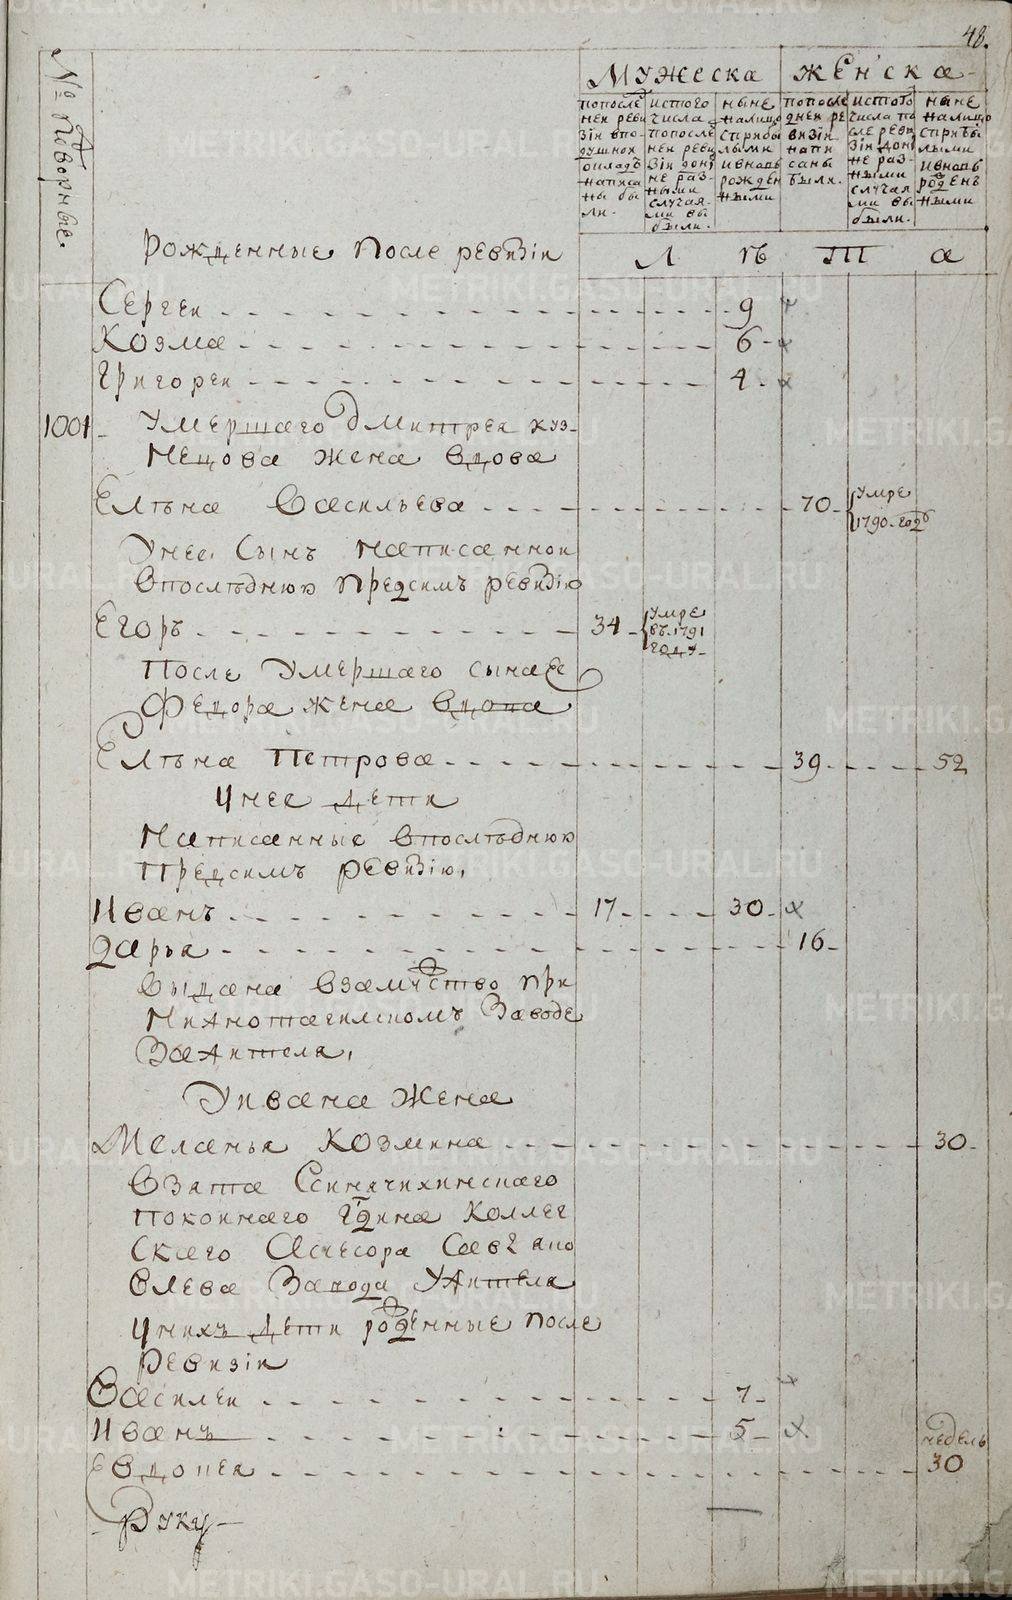 48.
№ Дворные.
Мужеска
Женска
попосле
ней реви
зіи впо
душной
окладъ
написа
ны бы
ли.
истого
числа
попосле
ней реви
зіи до ны
не раз-
ными
случая-
ми вы
были.
ныне
налицо
сприбы
лыми
ивновь
рожден
ными
попосле
дней ре
визіи
напи
саны
были.
истого
числа по
сле реви
зіи до ны
не раз-
ными
случая
ми вы
были.
ныне
налицо
сприбы
лыми
ивновь
рожденъ
ными
Рожденные после ревизіи
Л ѣ Т а
Сергеи 9
Козма 6
Григореи 4
1001 Умершаго Дмитрея куз-
нецова жена вдова
Елѣна Васильева 70 умре
1790 году
Унее Сынъ написанной
впослѣднюю предсимъ ревизію
Егоръ 34 умре
въ 1791
году
После умершаго сына ее
Федора жена вдова
Елѣна Петрова 39 52
Унее дети
Написанные впослѣднюю
предсимъ ревизію,
Иванъ 17 30
Дарья 16
выдана взамужство при
Нижнотагилскомъ Заводе
Зажителя,
Уивана жена
Меланья Козмина 30
Взята Ссинячихинскаго
покойнаго Гдина Коллег
скаго Асчесора Саввы яко
влева Завода у жителя
Унихъ дети рожденные после
ревизіи
Василеи 7
Иванъ 5
недель
Евдокея 30
Руку
METRIKI.GASO-URAL.RU